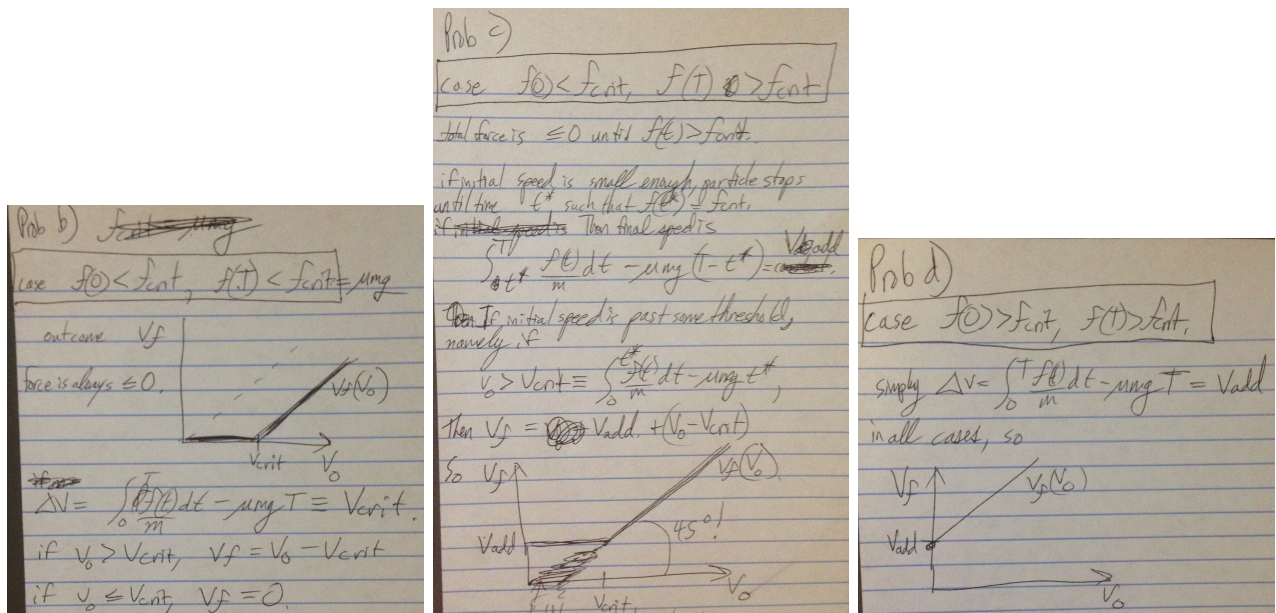 Prob b)
case f(0) < fcrit, f(T) < fcrit = μmg
outcome Vf
force is always ≤ 0.
Vf(V₀)
Vcrit V₀
ΔV = ∫₀ᵀ f(t)/m dt - μmg T ≡ Vcrit.
if V₀ > Vcrit, Vf = V₀ - Vcrit
if V₀ ≤ Vcrit, Vf = 0.
Prob c)
case f(0) < fcrit, f(T) > fcrit
total force is ≤ 0 until f(t) > fcrit.
if initial speed is small enough, particle stops
until time t* such that f(t*) = fcrit.
Then final speed is
∫ₜ*ᵀ f(t)/m dt - μmg (T - t*) = Vadd
If initial speed is past some threshold,
namely if
V₀ > Vcrit ≡ ∫₀ᵗ* f(t)/m dt - μmg t*,
Then Vf = Vadd + (V₀ - Vcrit)
So Vf
Vf(V₀)
45°!
Vadd
V₀
Vcrit
Prob d)
case f(0) > fcrit, f(T) > fcrit.
simply ΔV = ∫₀ᵀ f(t)/m dt - μmg T = Vadd
in all cases, so
Vf Vf(V₀)
Vadd
V₀